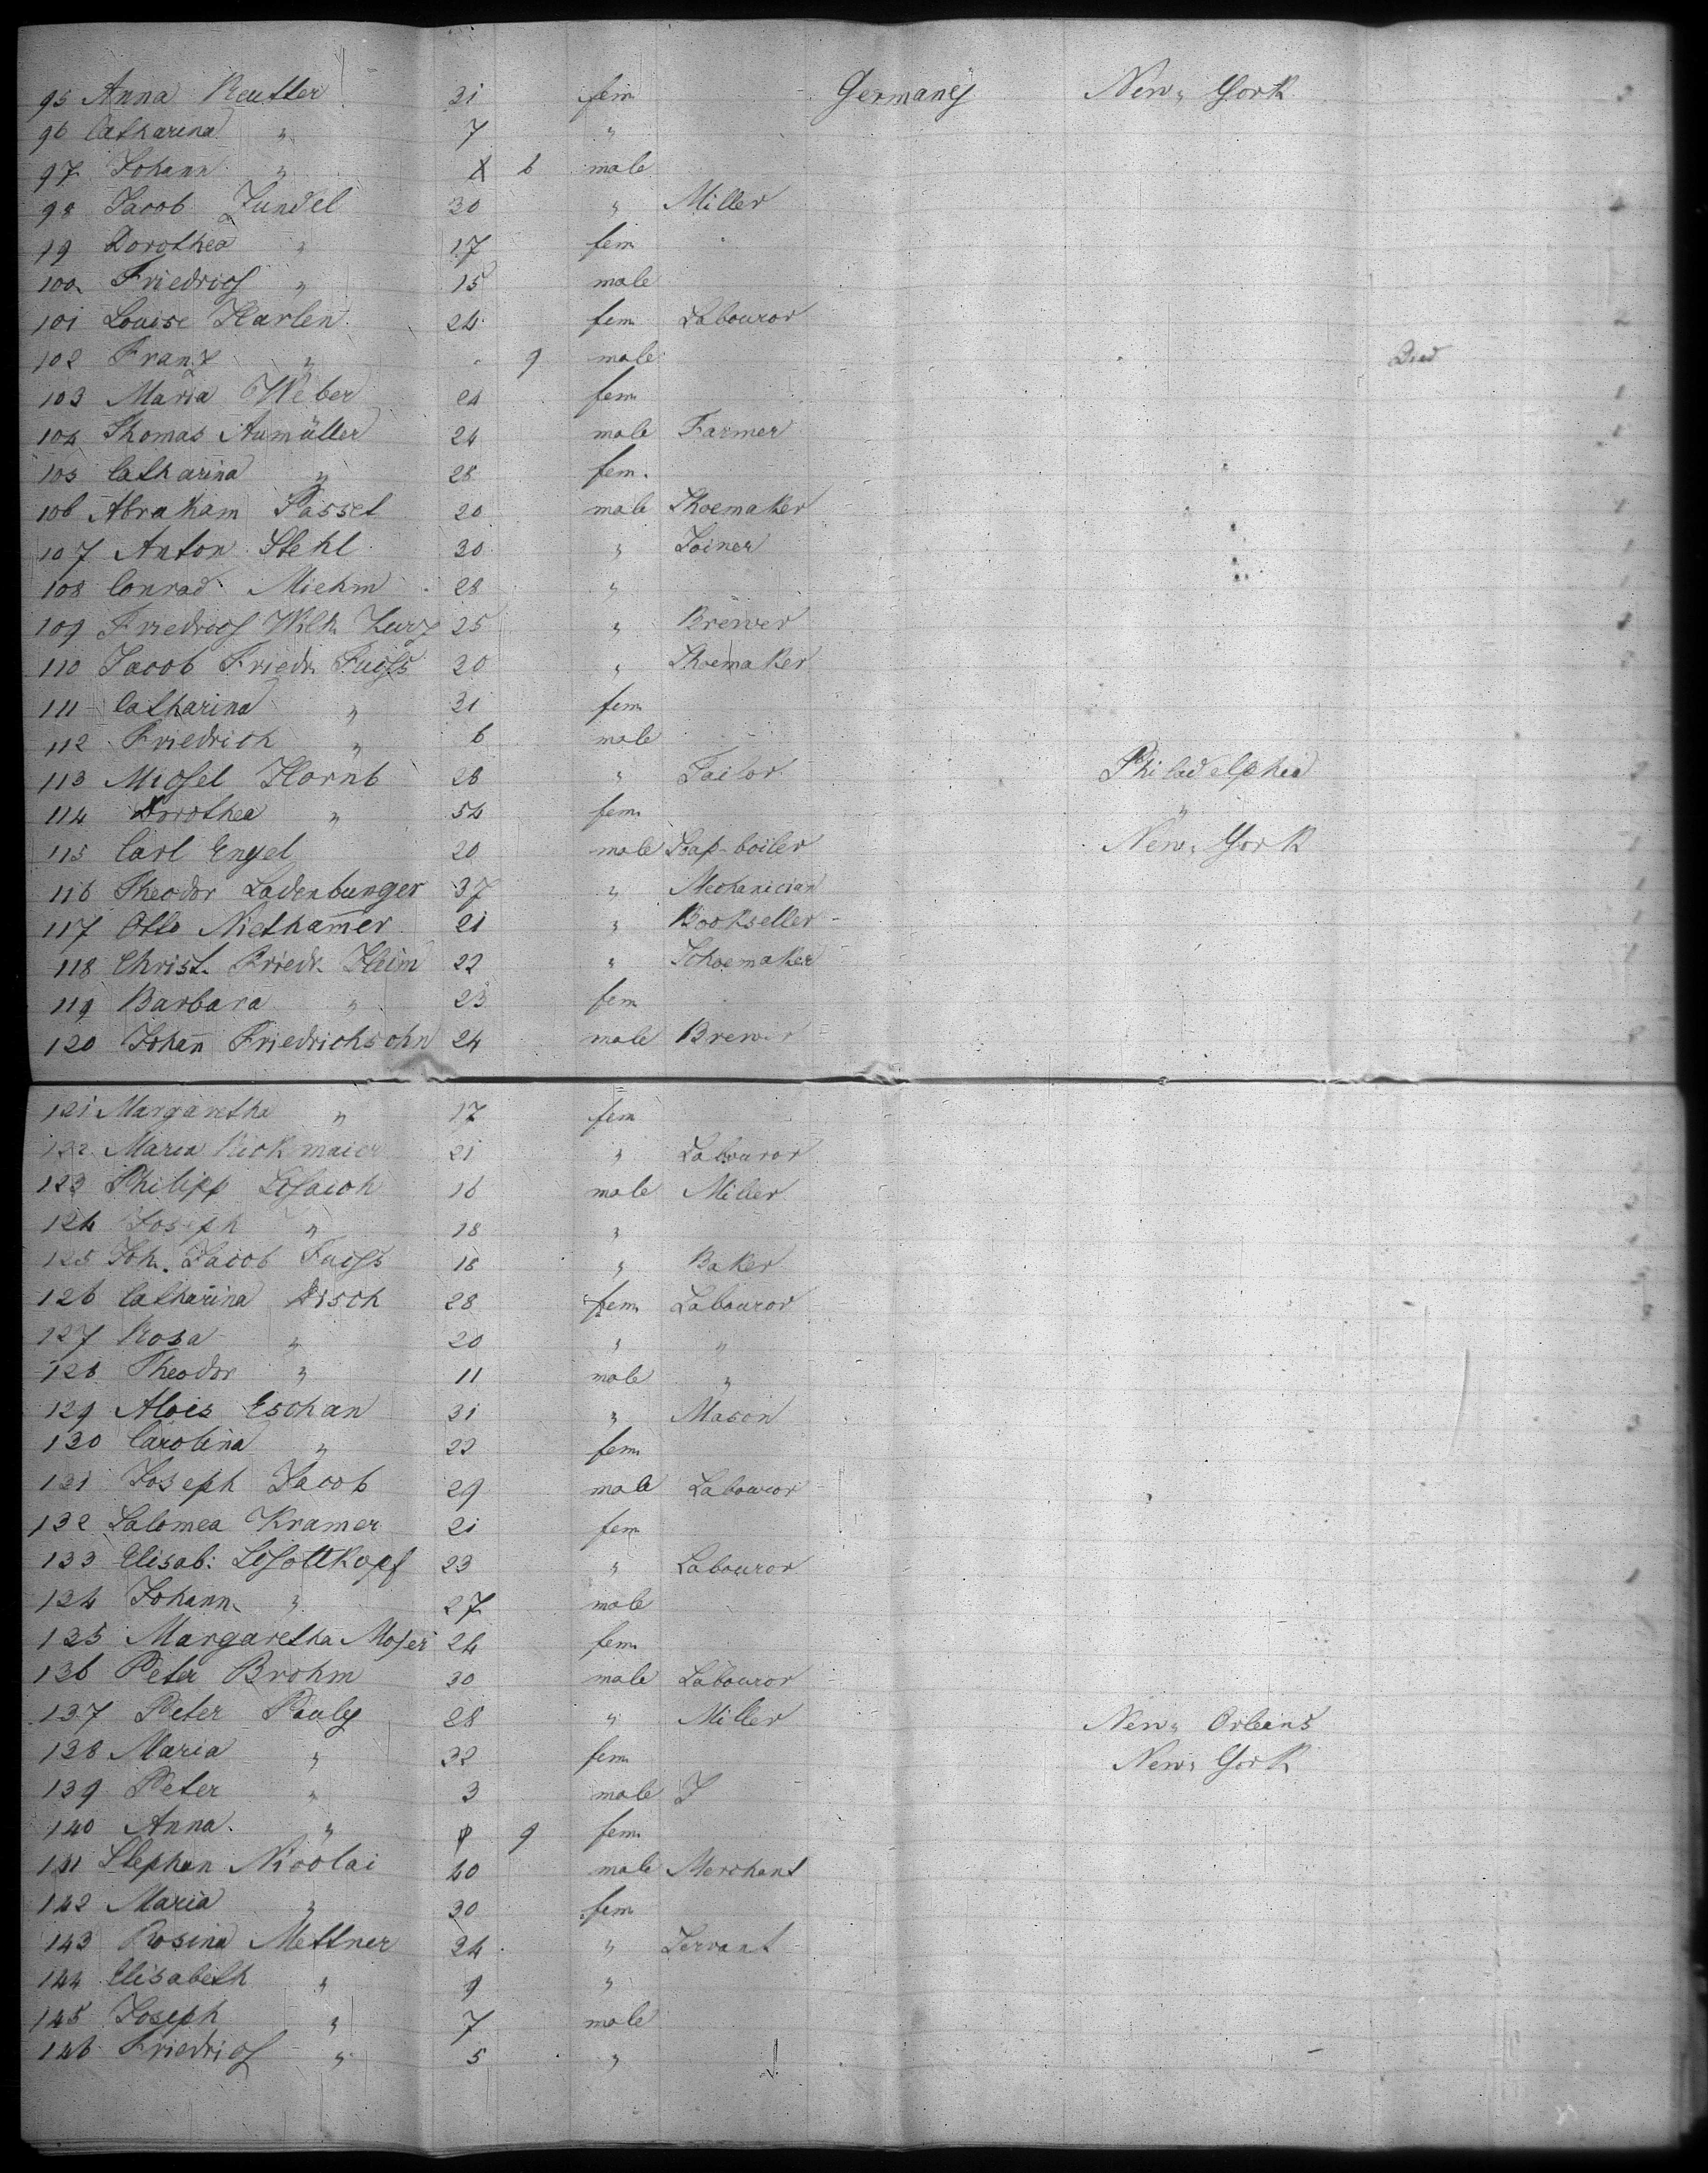 95 Anna Reutter 31 fem Germany New York
96 Catharina " 7 "
97 Johann " 6 male
98 Jacob Zundel 30 " Miller
99 Dorothea " 17 fem
100 Friedrich " 15 male
101 Louise Harlen 24 fem Labouror
102 Franz " 9 male Died
103 Maria Weber 24 fem
104 Thomas Aumüller 24 male Farmer
105 Catharina " 28 fem.
106 Abraham Passet 20 male Shoemaker
107 Anton Stehl 30 " Joiner
108 Conrad Miehm 28 "
109 Friedrich Wilh. 25 " Brewer
110 Jacob Friedr. Fuchs 30 " Shoemaker
111 Catharina " 31 fem
112 Friedrich " 6 male
113 Michel Hornb 28 " Tailor Philadelphia
114 Dorothea " 54 fem "
115 Carl Engel 20 male Soap-boiler New York
116 Theodor Ladenburger 37 " Mechanician
117 Otto Nietham̄er 21 " Bookseller
118 Christ. Friedr. Heim 22 " Schoemaker
119 Barbara " 23 fem
120 Johan̄ Friedrichsohn 24 male Brewer
121 Margarethe " 17 fem
122 Maria Rickmaier 21 " Labouror
123 Philipp 16 male Miller
124 Joseph " 18 "
125 Joh. Jacob Fuchs 18 " Baker
126 Catharina Disch 28 fem Labouror
127 Rosa " 20 " "
128 Theodor " 11 male "
129 Alois Eschan 31 " Mason
130 Carolina " 22 fem
131 Joseph Jacob 29 male Labouror
132 Salomea Kramer 21 fem
133 Elisab: Schottkopf 23 " Labouror
134 Johann " 27 male
135 Margaretha Moser 24 fem
136 Peter Brohm 30 male Labouror
137 Peter Pauly 28 " Miller New Orleans
138 Maria " 32 fem New York
139 Peter " 3 male J
140 Anna " 9 fem
141 Stephan Nicolai 40 male Merchant
142 Maria " 30 fem
143 Rosina Mettner 34 " Servant
144 Elisabeth " 9 "
145 Joseph " 7 male
146 Friedrich " 5 "